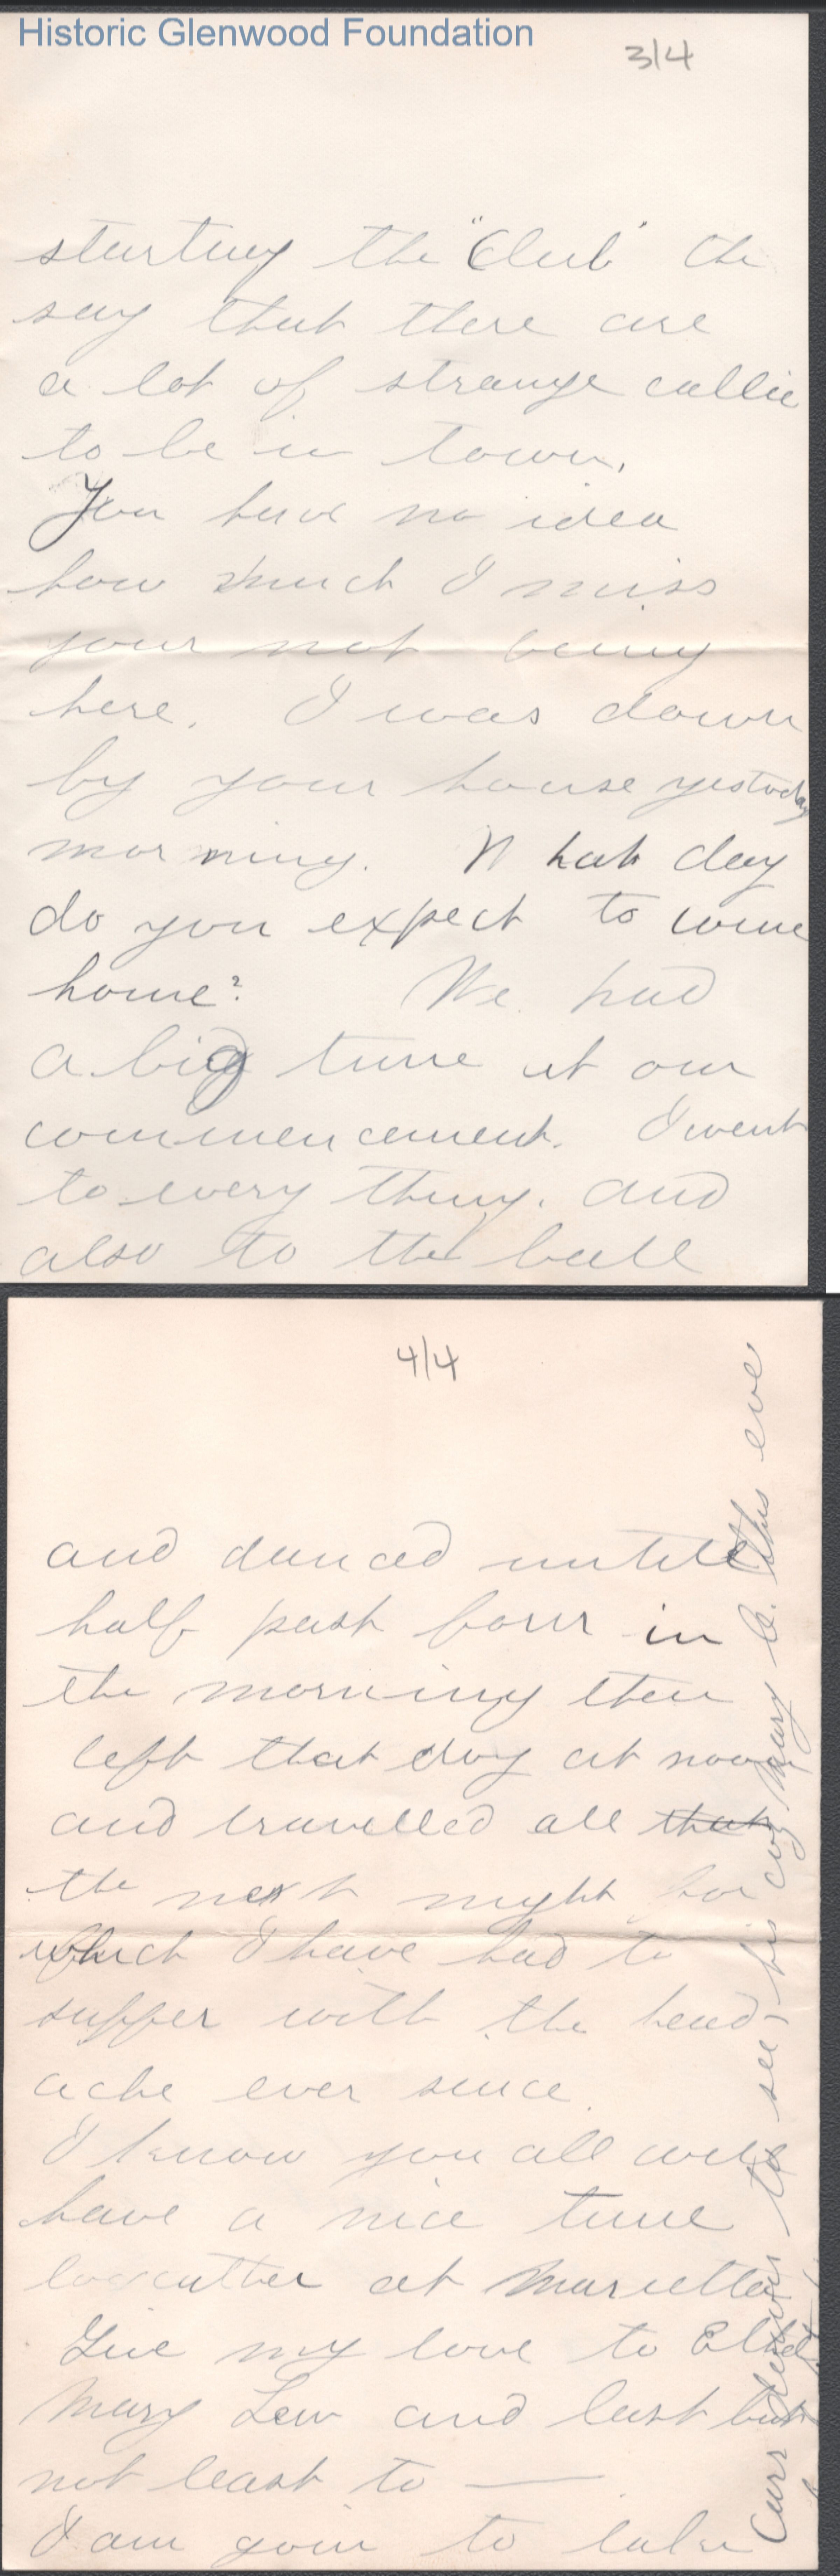 Historic Glenwood Foundation
3/4
starting the "Club" the
say that there are
a lot of strange
to be in town.
You have no idea
how much I miss
your not being
here. I was down
by your house yestoday
morning. What day
do you expect to come
home? We had
a big time at our
commencement. I went
to every thing. and
also to the ball
4/4
and danced untill
half past four in
the morning then
left that day at noon
and travelled all that
the next night for
which I have had to
suffer with the head-
ache ever since.
I know you all will
have a nice time
at Marietta
Give my love to Ethel
Mary Lew and last but
not least to —
I am goin to take
Carr down to see his coz Mary C. this eve